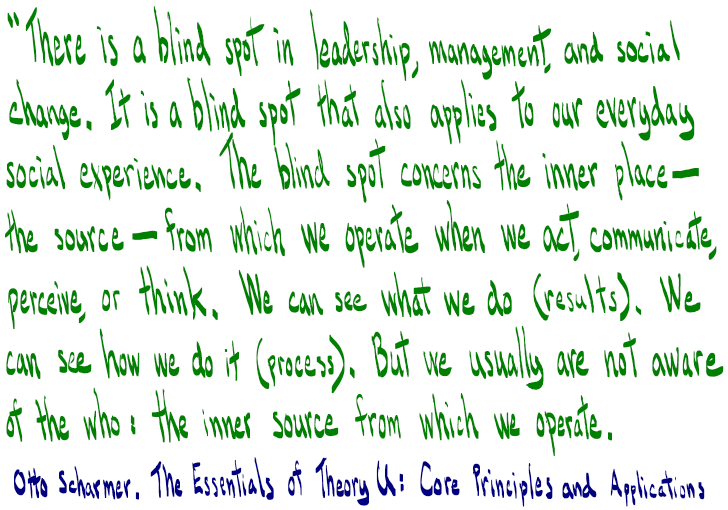 "There is a blind spot in leadership, management, and social
change. It is a blind spot that also applies to our everyday
social experience. The blind spot concerns the inner place—
the source—from which we operate when we act, communicate,
perceive, or think. We can see what we do (results). We
can see how we do it (process). But we usually are not aware
of the who: the inner source from which we operate.
Otto Scharmer. The Essentials of Theory U: Core Principles and Applications